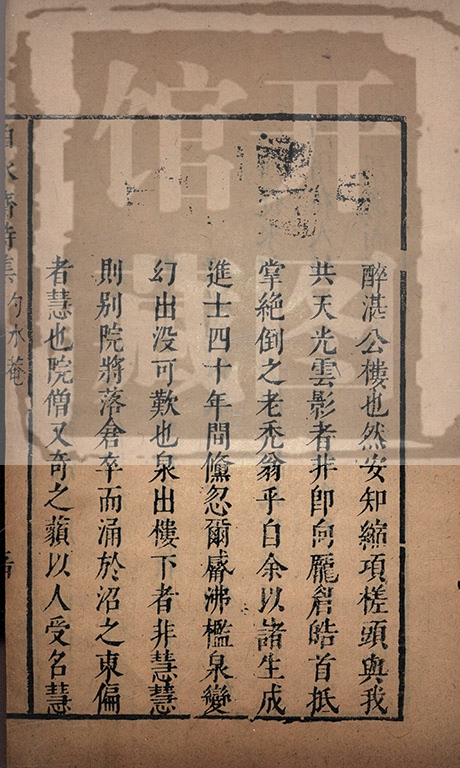 开图
馆藏
醉湛公樓也然安知縮項槎頭與我
共天光雲影者非卽向龐眉皓首抵
掌絕倒之老禿翁乎自余以諸生成
進士四十年間儵忽爾觱沸檻泉變
幻出没可歎也泉出樓下者非慧慧
則别院將落倉卒而涌於沼之東偏
者慧也院僧又奇之蘋以人受名慧
水齋詩集 勺水菴